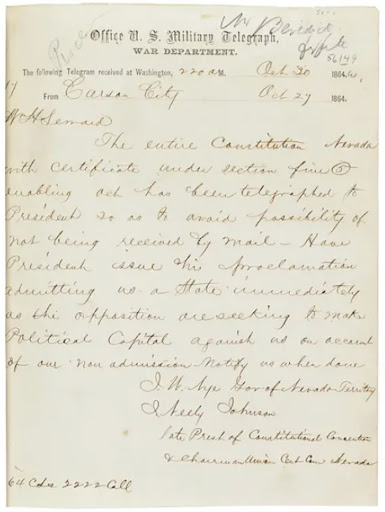 Office U. S. Military Telegraph,
WAR DEPARTMENT.
The following Telegram received at Washington, 220 AM. Oct 30 1864.
From Carson City Oct 27 1864.
W H Seward
The entire Constitution Nevada
with certificate under section five
enabling act has been telegraphed to
President so as to avoid possibility of
not being received by mail - Have
President issue his Proclamation
admitting us a State immediately
as the opposition are seeking to make
Political Capital against us on account
of our non admission - Notify us when done
J. W. Nye Gov of Nevada Territory
J Neely Johnson
late Prest of Constitutional Convention
& Chairman Union Cent Com Nevada
64 2222 Coll